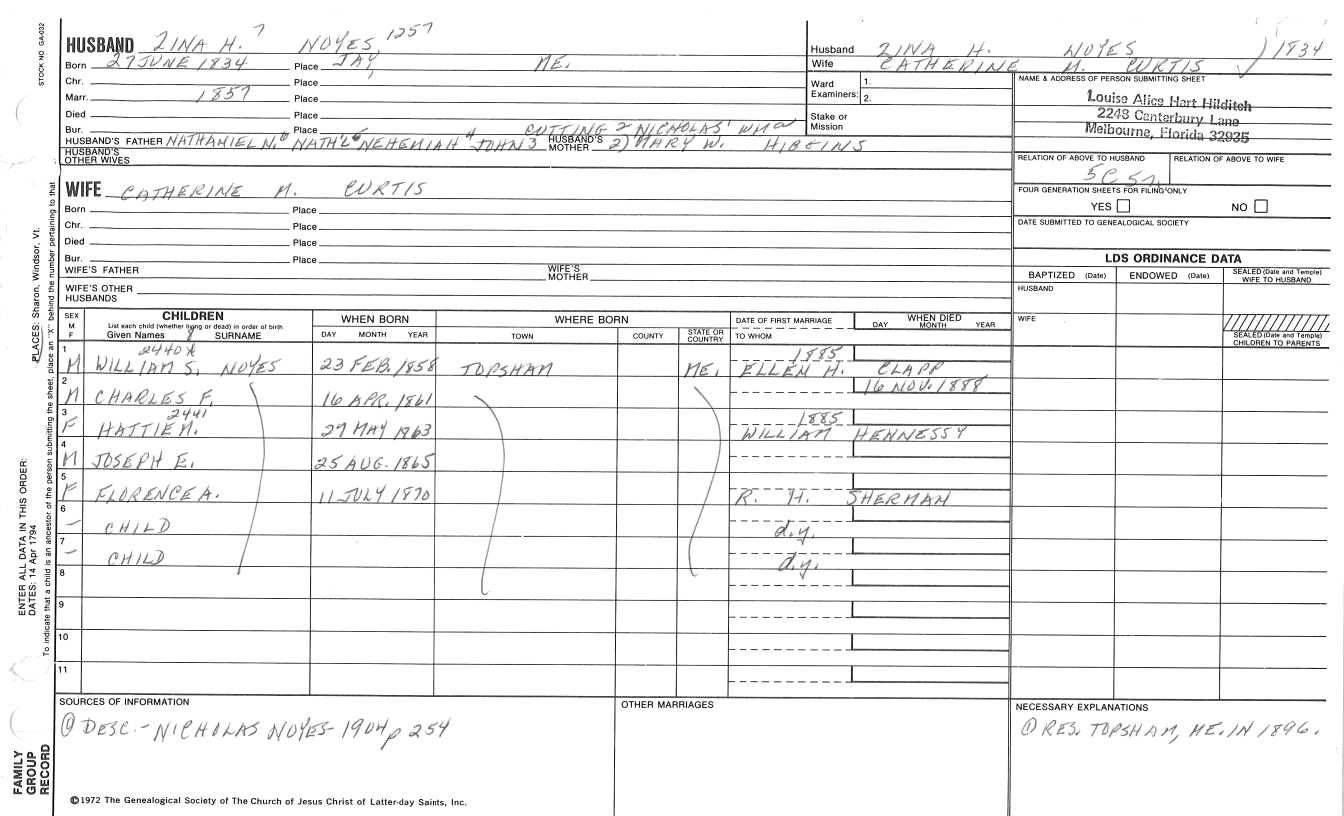 STOCK NO GA-032
HUSBAND ZINA H. 7 NOYES 1257
Born 27 JUNE 1834 Place JAY, ME.
Chr. Place
Marr. 1857 Place
Died Place
Bur. Place CUTTING 2 NICHOLAS' WM a
HUSBAND'S FATHER NATHANIEL N. 6 NATH'L 5 NEHEMIAH 4 JOHN 3 HUSBAND'S MOTHER 2) MARY W. HIGGINS
HUSBAND'S OTHER WIVES
Husband ZINA H. NOYES 1834
Wife CATHERINE M. CURTIS
Ward Examiners: 1.
2.
Stake or Mission
NAME & ADDRESS OF PERSON SUBMITTING SHEET
Louise Alice Hart Hilditch
2248 Canterbury Lane
Melbourne, Florida 32935
RELATION OF ABOVE TO HUSBAND RELATION OF ABOVE TO WIFE
5C
FOUR GENERATION SHEETS FOR FILING ONLY
YES NO
DATE SUBMITTED TO GENEALOGICAL SOCIETY
WIFE CATHERINE M. CURTIS
Born Place
Chr. Place
Died Place
Bur. Place
WIFE'S FATHER WIFE'S MOTHER
WIFE'S OTHER HUSBANDS
LDS ORDINANCE DATA
BAPTIZED (Date) ENDOWED (Date) SEALED (Date and Temple) WIFE TO HUSBAND
HUSBAND
WIFE
SEALED (Date and Temple) CHILDREN TO PARENTS
SEX M F
CHILDREN
List each child (whether living or dead) in order of birth
Given Names 8 SURNAME
WHEN BORN
DAY MONTH YEAR
WHERE BORN
TOWN COUNTY STATE OR COUNTRY
DATE OF FIRST MARRIAGE
TO WHOM
WHEN DIED
DAY MONTH YEAR
2440A 1885
1 M WILLIAM S. NOYES 23 FEB. 1858 TOPSHAM ME. ELLEN H. CLAPP
16 NOV. 1888
2 M CHARLES F. 16 APR. 1861
2441 1885
3 F HATTIE M. 29 MAY 1963 WILLIAM HENNESSY
4 M JOSEPH E. 25 AUG. 1865
5 F FLORENCE A. 11 JULY 1870 R. H. SHERMAN
6 – CHILD d.y.
7 – CHILD d.y.
8
9
10
11
SOURCES OF INFORMATION
① DESC.- NICHOLAS NOYES- 1904 p 254
OTHER MARRIAGES
NECESSARY EXPLANATIONS
① RES. TOPSHAM, ME. IN 1896.
©1972 The Genealogical Society of The Church of Jesus Christ of Latter-day Saints, Inc.
FAMILY GROUP RECORD
ENTER ALL DATA IN THIS ORDER:
DATES: 14 Apr 1794
PLACES: Sharon, Windsor, Vt.
To indicate that a child is an ancestor of the person submitting the sheet, place an "X" behind the number pertaining to that